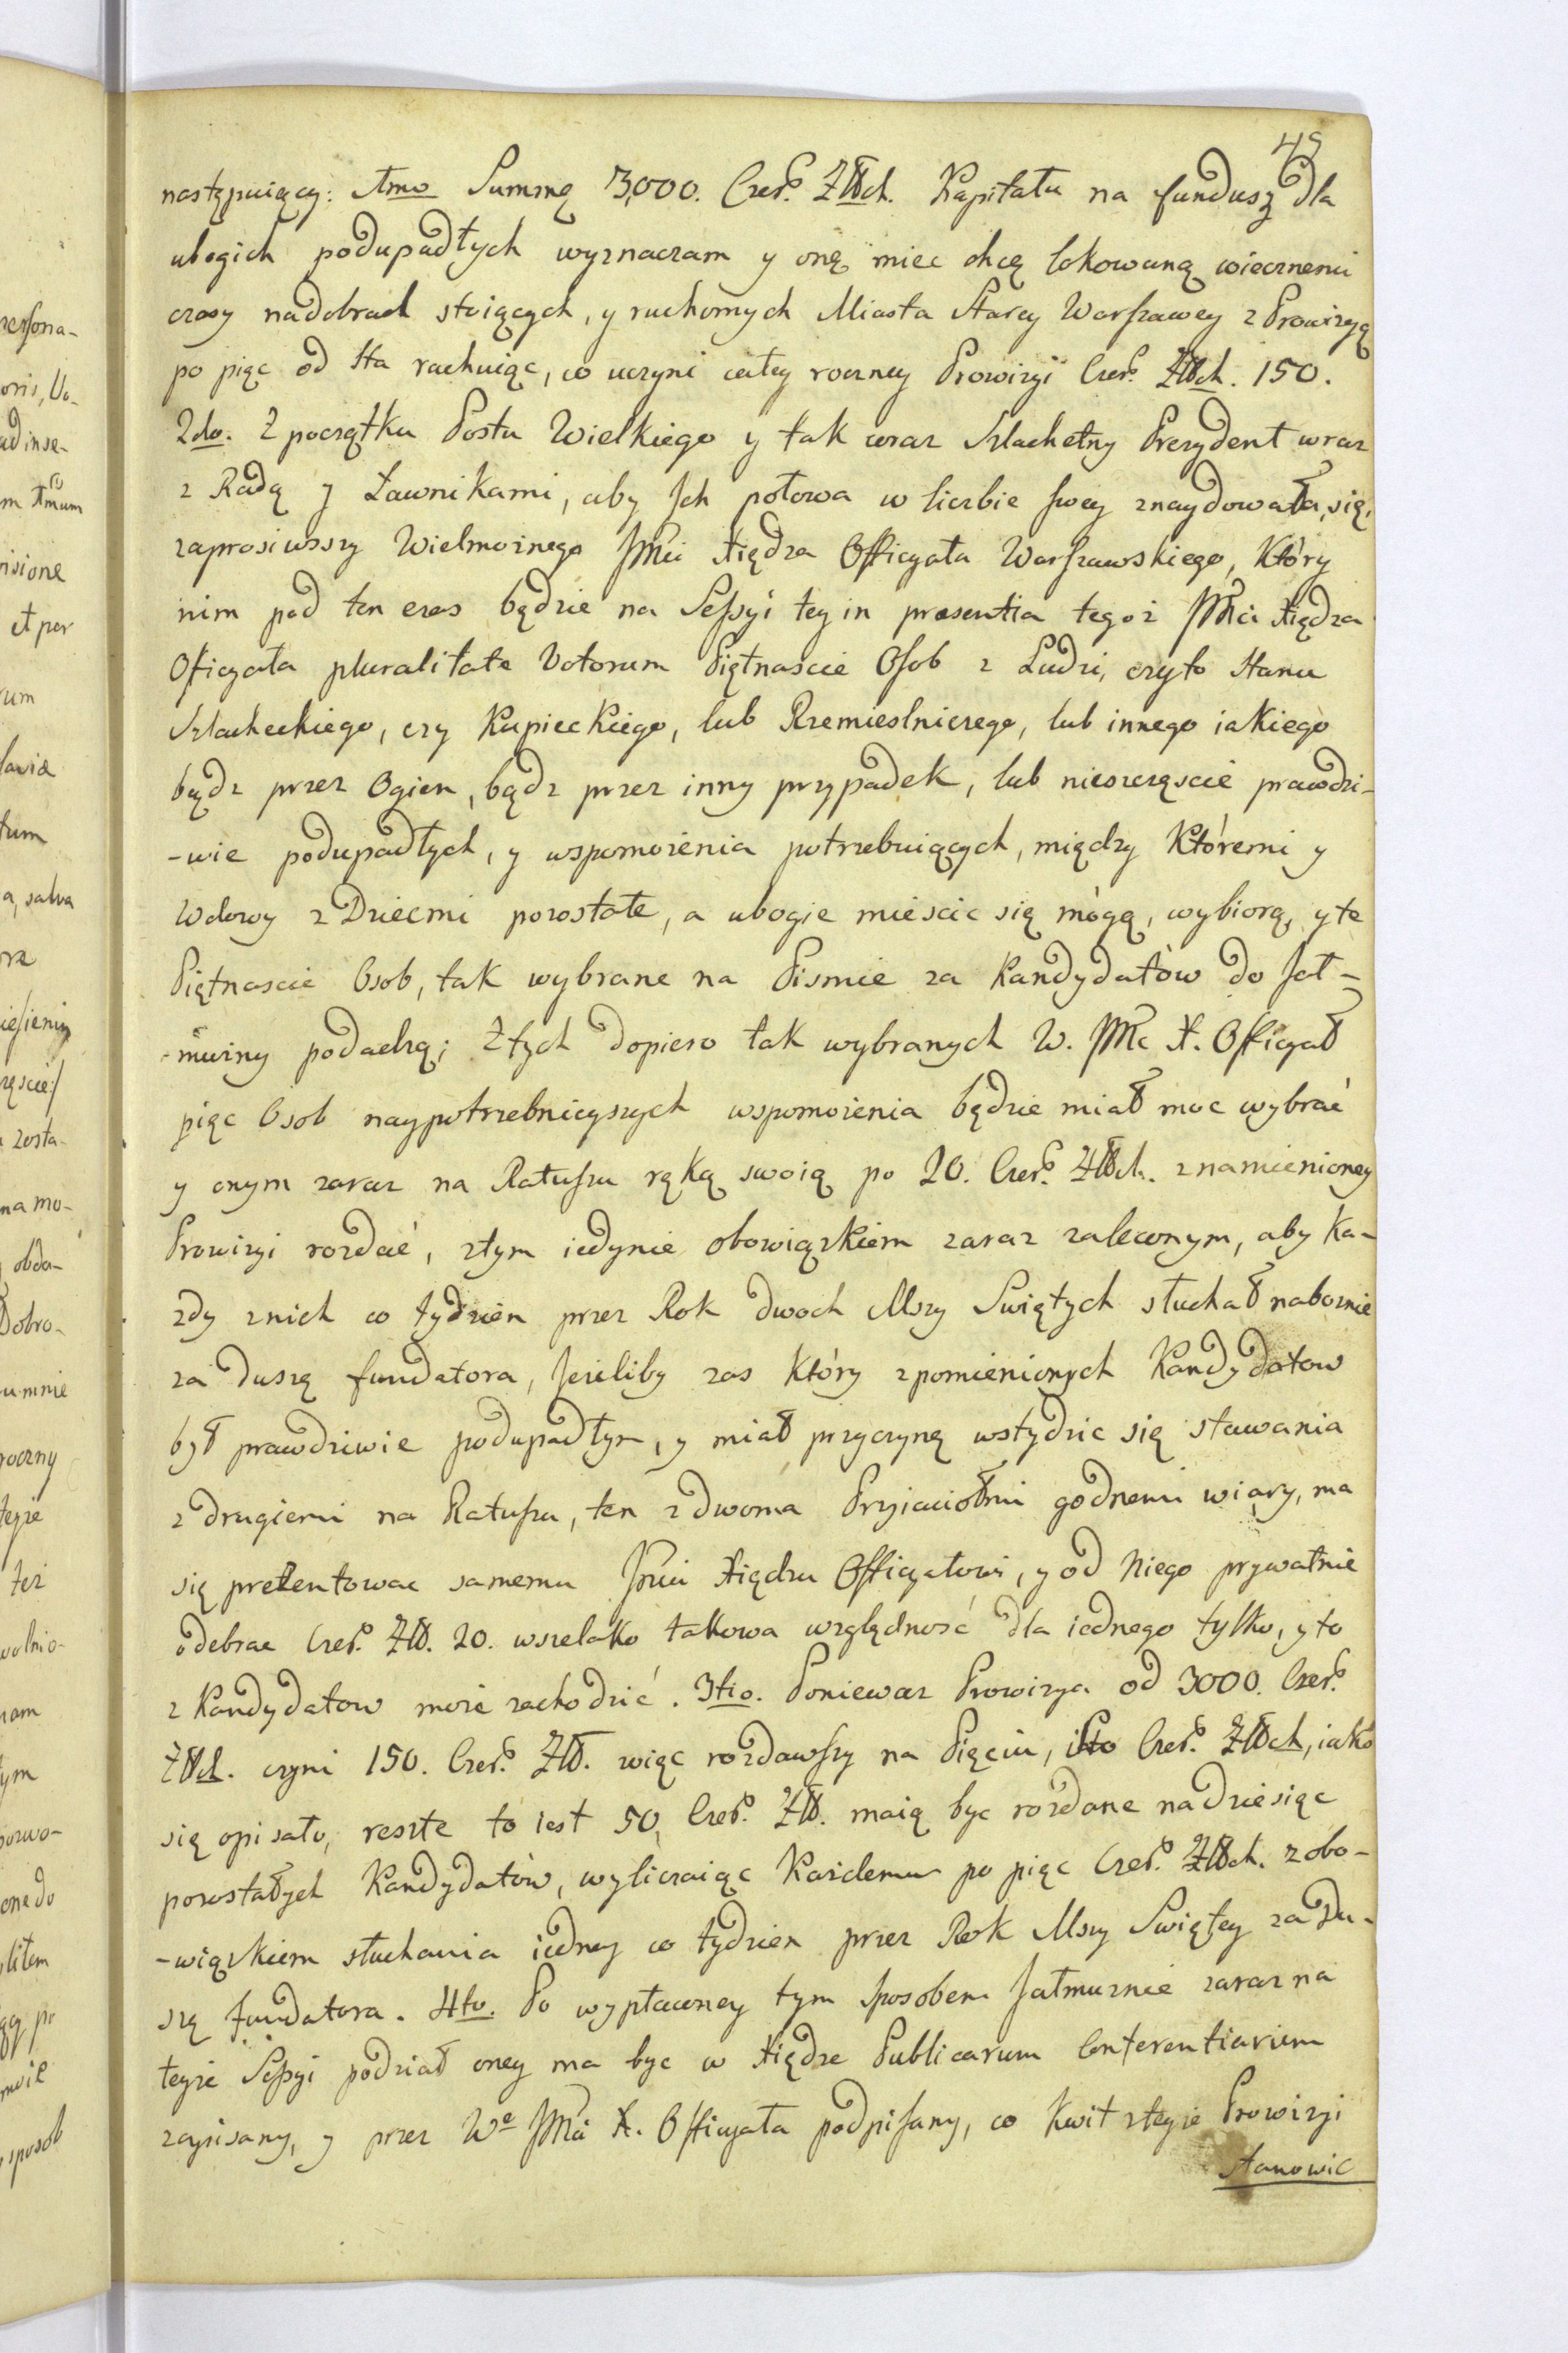 49
następuiący: 1mo Summę 3,000. Czer: Złłch. Kapitału na fundusz dla
ubogich podupadłych wyznaczam y onę miec chcę lokowaną wiecznemi
czasy nadobrach stoiących, y ruchomych Miasta Starey Warszawy z Prowizyą
po pięc od Sta rachuiąc, co uczyni całey roczney Prowizyi Czer: Złłch. 150.
2do. Z początku Postu Wielkiego y tak coraz Szlachetny Prezydent wraz
z Radą y Ławnikami, aby Ich połowa w liczbie swey znaydowała się,
zaprosiwszy Wielmożnego JMci Xiędza Officyała Warszawskiego, Który
nim pod ten czas będzie na Sessyi tey in praesentia tegoż JMci Xiędza
Oficyała pluralitate Votorum Piętnascie Osob z Ludzi, czyto Stanu
Szlacheckiego, czy Kupieckiego, lub Rzemieslniczego, lub innego iakiego
bądz przez Ogien, bądz przez inny przypadek, lub nieszczęscie prawdzi-
-wie podupadłych, y wspomożenia potrzebuiących, między Któremi y
Wdowy z Dziecmi pozostałe, a ubogie miescic się mogą, wybiorą, y te
Piętnascie Osob, tak wybrane na Pismie za Kandydatów do Jał-
-mużny podadzą; Z tych dopiero tak wybranych W. JMc X. Officyał
pięc Osob naypotrzebnieyszych wspomożenia będzie miał moc wybrać
y onym zaraz na Ratuszu ręką swoią po 20. Czer: Złłch. znamienioney
Prowizyi rozdać, ztym iedynie obowiązkiem zaraz zaleconym, aby Ka-
zdy znich co tydzien przez Rok dwoch Mszy Swiętych słuchał naboznie
za duszę fundatora, Jezeliby zas Który zpomienionych Kandydatow
był prawdziwie podupadłym, y miał przyczynę wstydzic się stawania
z drugiemi na Ratuszu, ten z dwoma Przyiaciołmi godnemi wiary, ma
się prezentowac samemu Jmci Xiędzu Officyałowi, y od Niego prywatnie
odebrac Czer: Złł. 20. wszelako takowa względność dla iednego tylko, y to
z Kandydatow może zachodzić. 3tio. Poniewaz Prowizya od 3000. Czer:
Złłch. czyni 150. Czer: Złł. więc rozdawszy na Pięciu, sto Czer: Złłch, iako
się opisało, reszte to iest 50, Czer: Złł. maią byc rozdane na dziesięc
pozostałych Kandydatów, wyliczaiąc Każdemu po pięc Czer: Złłch. z obo-
-wiązkiem słuchania iedney co tydzien przez Rok Mszy Swiętey za Du-
szę fundatora. 4to. Po wypłaconey tym sposobem Jałmuznie zaraz na
teyże Sessyi podział oney ma byc w Xiędze Publicarum Conferentiarum
zapisany, y przez We JMci X. Officyała podpisany, co Kwit zteyże Prowizyi
stanowic